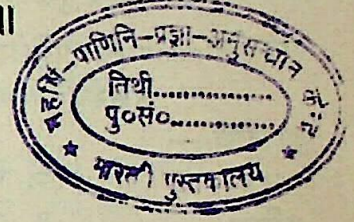 ॥
महर्षि-पाणिनि-प्रज्ञा-अनुसन्धान केन्द्र
तिथी..................
पु०सं०..................
★ भारती पुस्तकालय ★